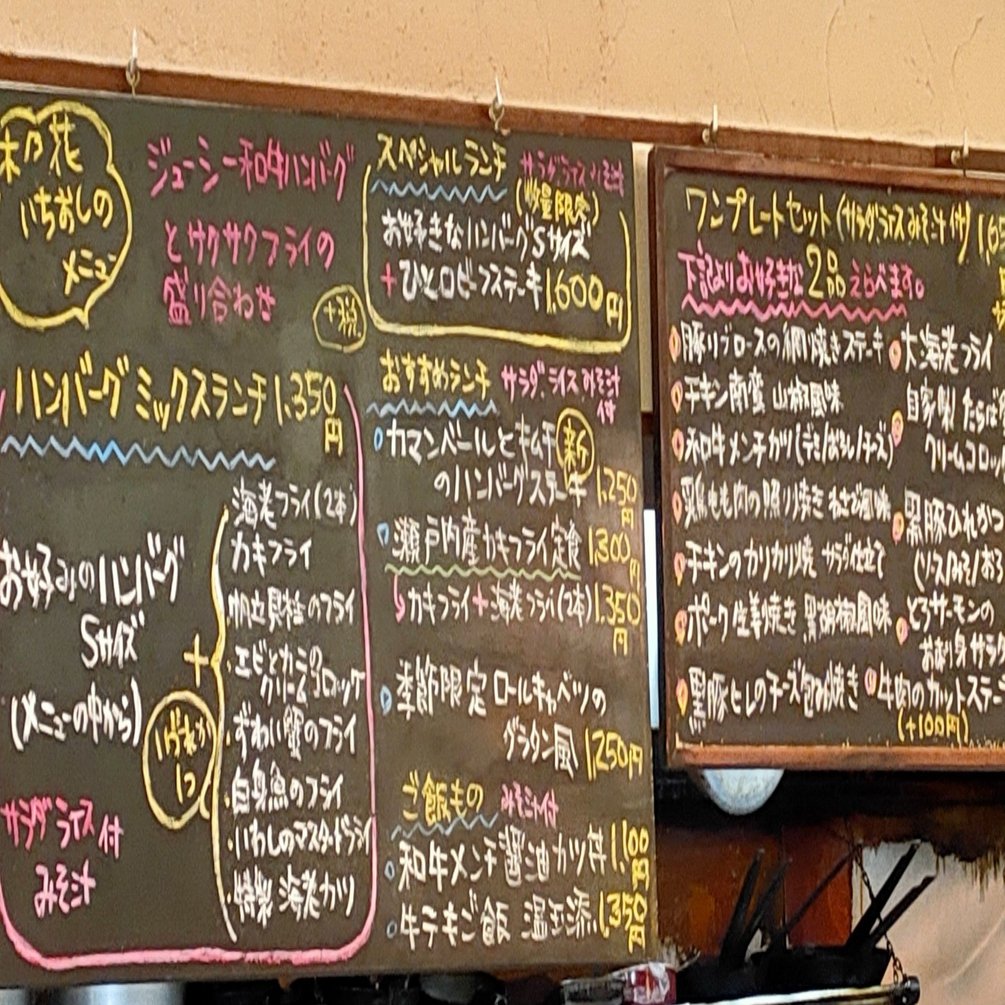 木乃花
いちおしの
メニュー
ジューシー和牛ハンバーグ
とサクサクフライの
盛り合わせ
+税
ハンバーグミックスランチ 1,350円
お好みのハンバーグ
Sサイズ
(メニューの中から)
+
いずれか
1つ
海老フライ(2本)
カキフライ
帆立貝柱のフライ
・エビとカニの
クリームコロッケ
・ずわい蟹のフライ
・白身魚のフライ
・いわしのマスタードフライ
・特製 海老カツ
サラダ ライス 付
みそ汁
スペシャルランチ サラダライスみそ汁
(数量限定)
お好きなハンバーグSサイズ
+ひとロビーフステーキ 1,600円
おすすめランチ サラダ、ライスみそ汁
付
カマンベールとキムチ 新
のハンバーグステーキ 1,250円
瀬戸内産カキフライ定食 1,300円
カキフライ+海老フライ(2本) 1,350円
季節限定 ロールキャベツの
グラタン風 1,250円
ご飯もの みそ汁付
和牛メンチ醤油カツ丼 1,100円
牛テキご飯 温玉添 1,350円
ワンプレートセット(サラダ、ライスみそ汁付)
下記よりお好きな2品えらべます。
豚リブロースの網焼きステーキ
チキン南蛮 山椒風味
和牛メンチカツ(デミ/おろし/チーズ)
鶏もも肉の照り焼き わさび風味
チキンのカリカリ焼 サラダ仕立て
ポーク生姜焼き 黒胡椒風味
黒豚ヒレのチーズ包み焼き
大海老フライ
自家製 たらば
クリームコロッ
黒豚ひれか
(ソース/みそ/おろ
とろサーモンの
お刺身サラ
牛肉のカットステー
(+100円)